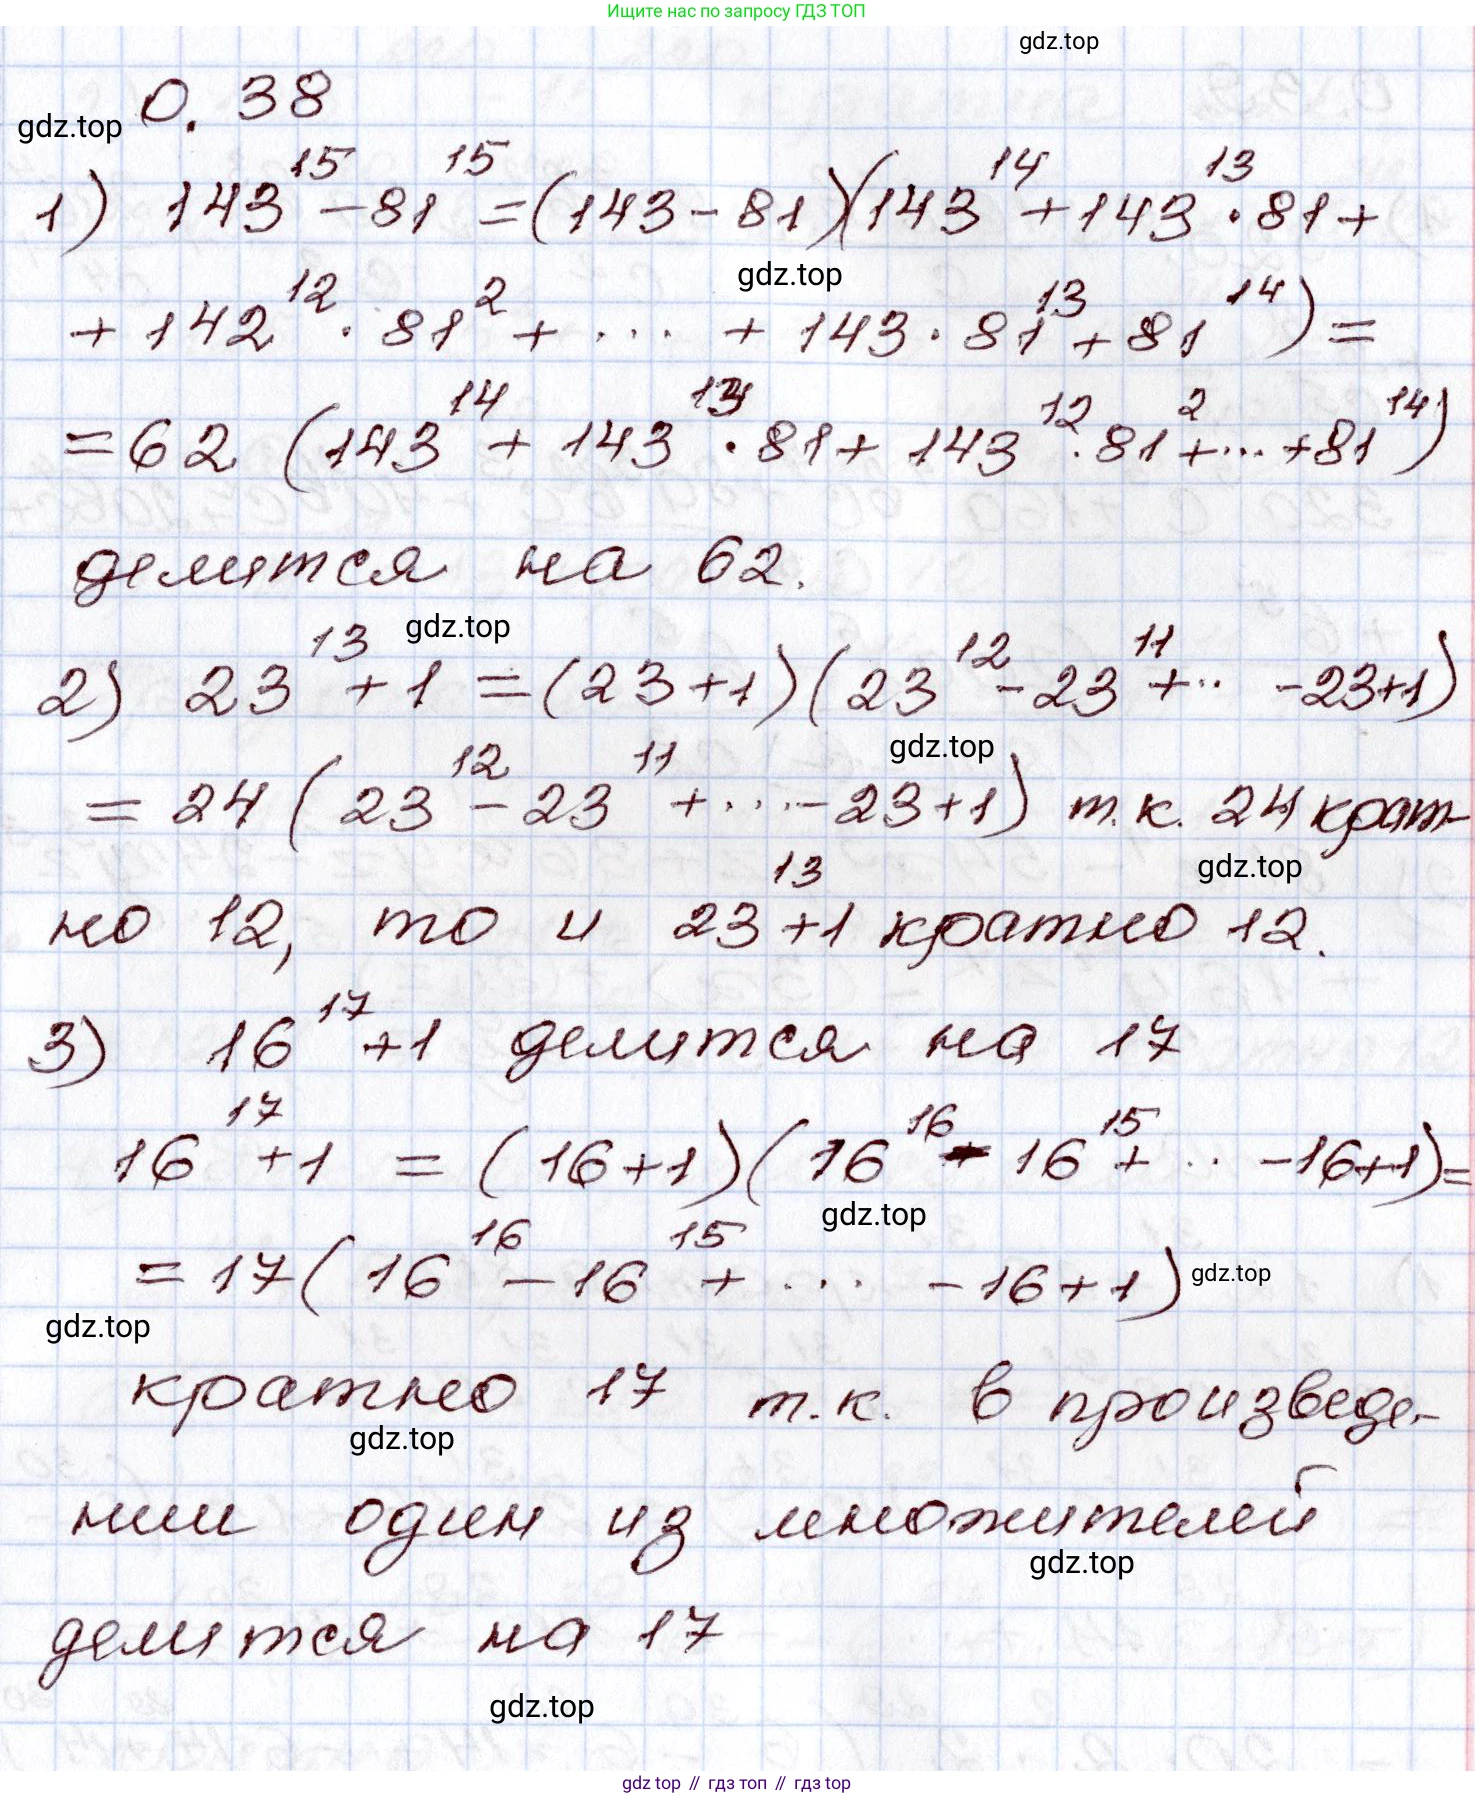 Ищите нас по запросу ГДЗ ТОП
gdz.top
0.38
gdz.top
1) 143¹⁵ - 81¹⁵ = (143 - 81)(143¹⁴ + 143¹³ · 81 +
gdz.top
+ 142¹² · 81² + ... + 143 · 81¹³ + 81¹⁴) =
= 62 (143¹⁴ + 143¹³ · 81 + 143¹² · 81² + ... + 81¹⁴)
делится на 62.
gdz.top
2) 23¹³ + 1 = (23 + 1)(23¹² - 23¹¹ + ·· - 23 + 1)
gdz.top
= 24 (23¹² - 23¹¹ + ... - 23 + 1) т.к. 24 крат-
gdz.top
но 12, то и 23¹³ + 1 кратно 12.
3) 16¹⁷ + 1 делится на 17
16¹⁷ + 1 = (16 + 1)(16¹⁶ - 16¹⁵ + ·· - 16 + 1) =
gdz.top
= 17 (16¹⁶ - 16¹⁵ + ... - 16 + 1)
gdz.top
gdz.top
кратно 17 т.к. в произведе-
gdz.top
нии один из множителей
gdz.top
делится на 17
gdz.top
gdz top // гдз топ // gdz top